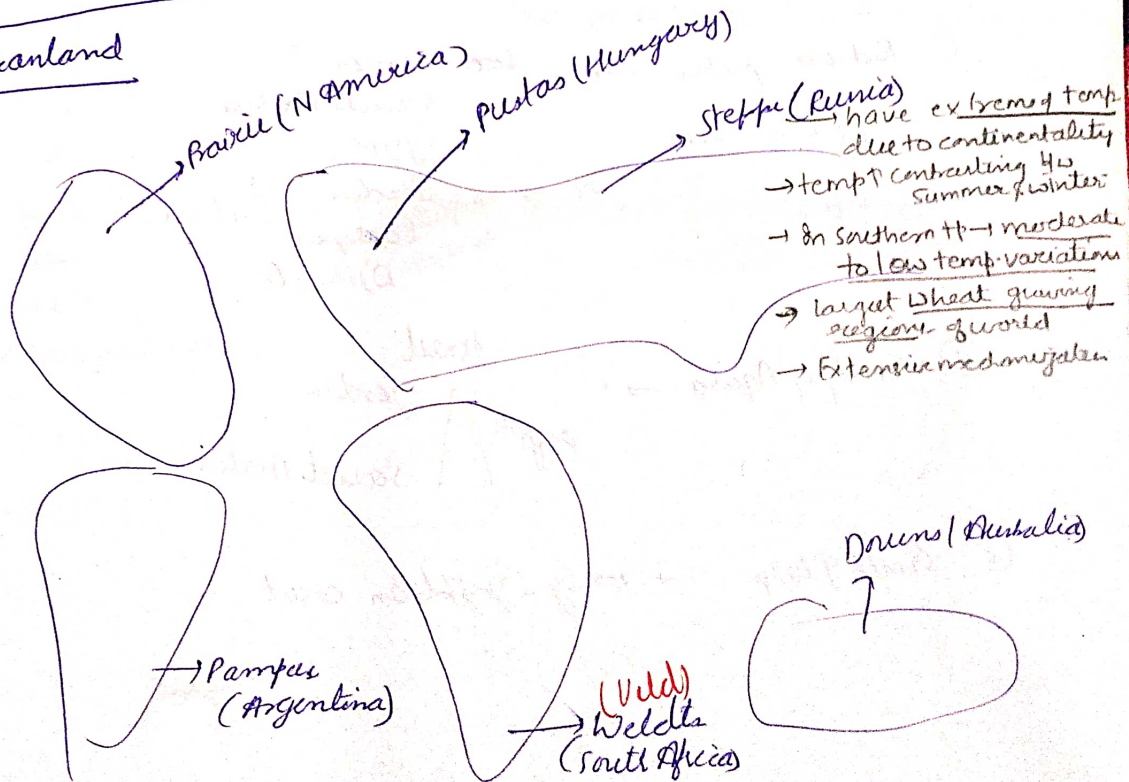 Prairie (N America)
Pustas (Hungary)
Steppe (Russia)
→ have extreme of temp
due to continentality
→ temp↑ contrasting b/w
summer & winter
→ In southern H → moderate
to low temp. variations
→ largest wheat growing
regions of world
→ Extensive
Pampas
(Argentina)
(Veld)
Weldts
(South Africa)
Downs (Australia)